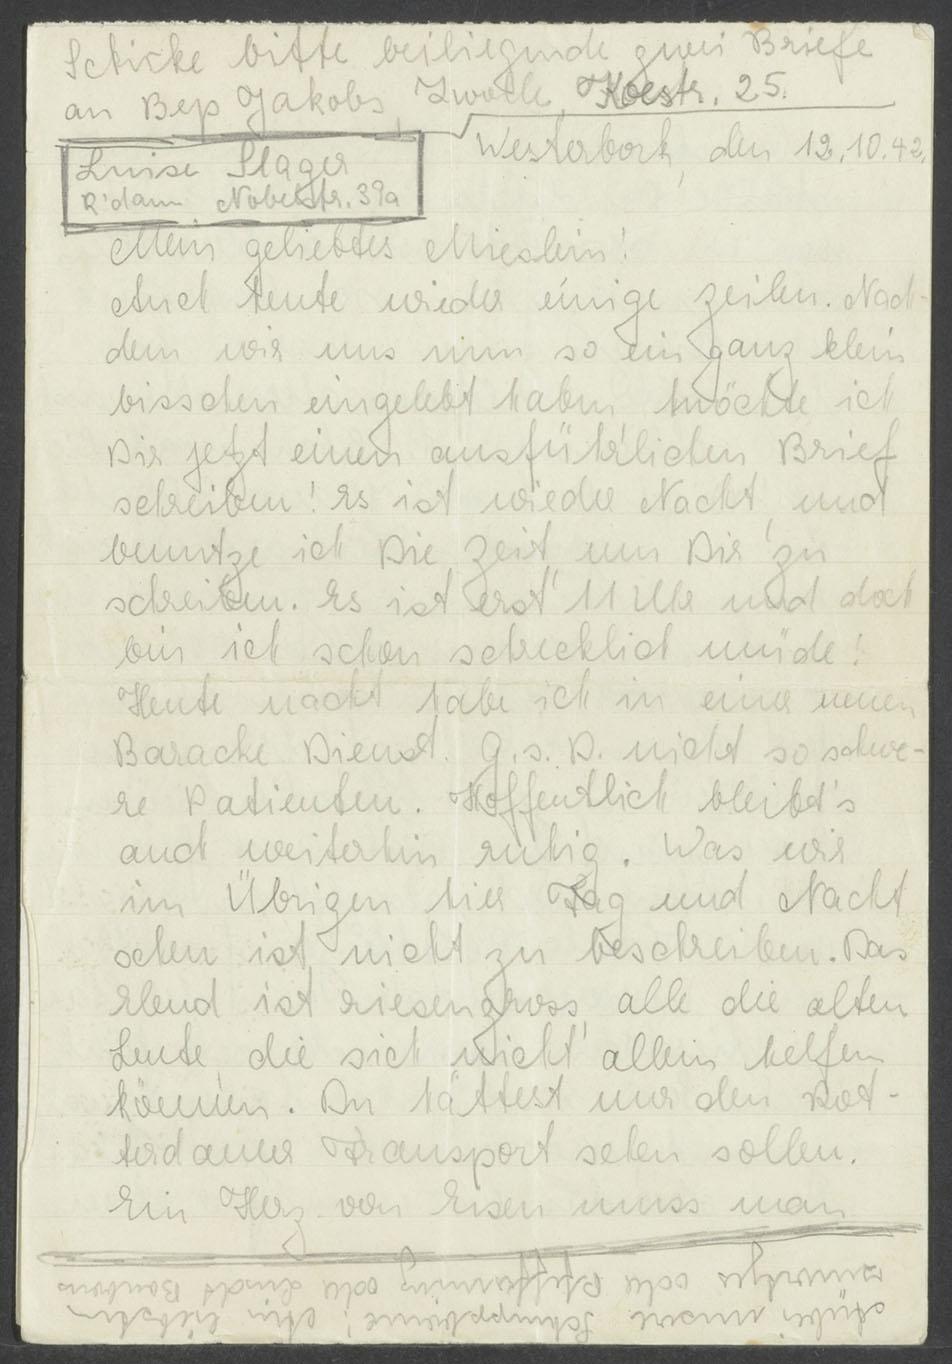 Schicke bitte beiliegende zwei Briefe
an Bep Jakobs, Zwolle, Koestr. 25.
Westerbork, den 12.10.42.
Luise Slager
R'dam Nobelstr. 39a
Mein geliebtes Mieslein!
Auch heute wieder einige Zeilen. Nach-
dem wir uns nun so ein ganz klein
bisschen eingelebt haben möchte ich
Dir jetzt einen ausführlichen Brief
schreiben! Es ist wieder Nacht, und
benutze ich Die Zeit, um Dir zu
schreiben. Es ist erst 11 Uhr und doch
bin ich schon schrecklich müde!
Heute nacht habe ich in einer neuen
Baracke Dienst. G.s.D. nicht so schwe-
re Patienten. Hoffentlich bleibt's
auch weiterhin ruhig. Was wir
im Übrigen hier Tag und Nacht
sehen ist, nicht zu beschreiben. Das
Elend ist riesengross, alle die alten
Leute, die sich nicht allein helfen
können. Du hättest nur den Rot-
terdamer Transport sehen sollen.
Ein Herz von Eisen muss man
unsere Schnupp am liebsten
oder oder Bonbons